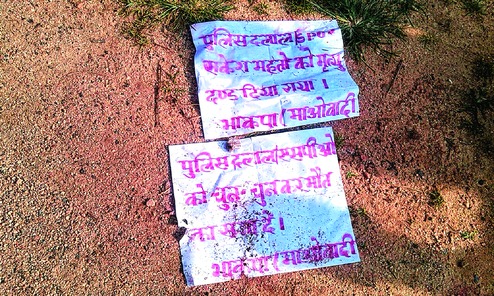 पुलिस दलाल SPOO
राकेश महतो को मृत्यु
दण्ड दिया गया।
भाकपा (माओवादी
पुलिस दलाल एसपीओ
को चुन-चुन कर मौत
का सजा दें।
भाकपा (माओवादी